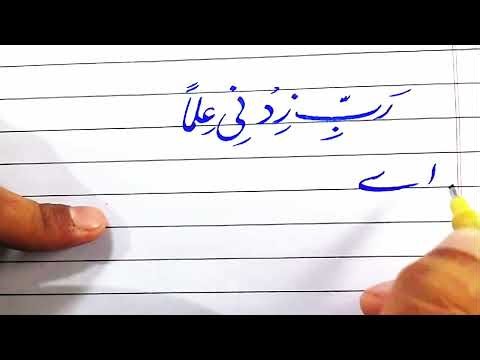 رَبِّ زِدْنِي عِلمًا
اے